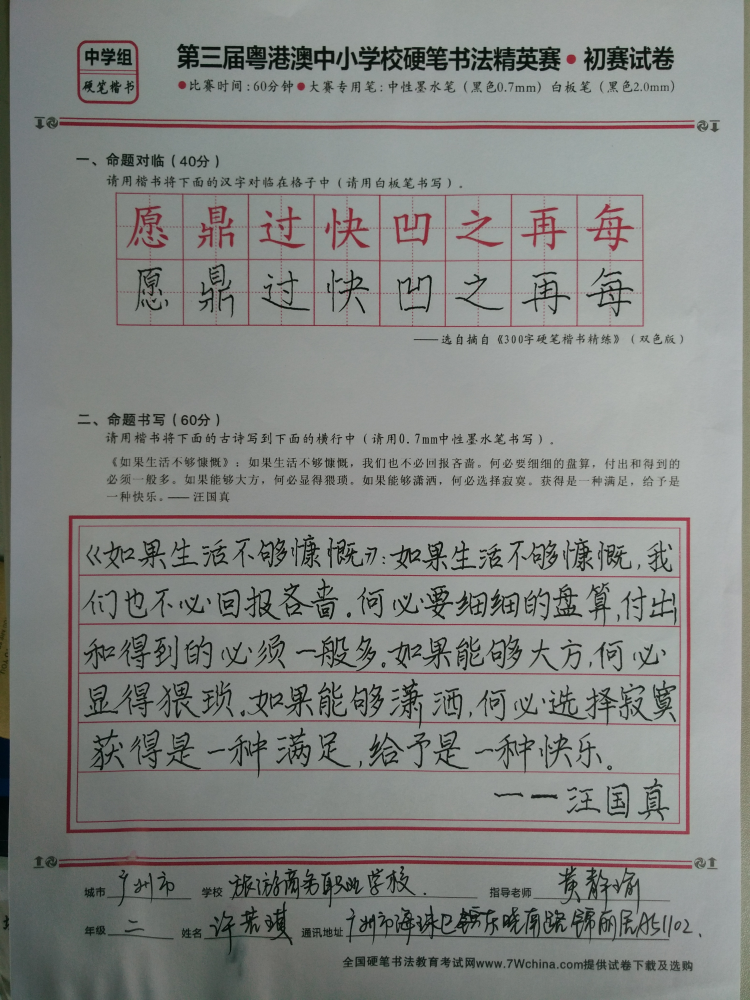 中学组
硬笔楷书
第三届粤港澳中小学校硬笔书法精英赛·初赛试卷
●比赛时间:60分钟●大赛专用笔:中性墨水笔(黑色0.7mm)白板笔(黑色2.0mm)
一、命题对临(40分)
请用楷书将下面的汉字对临在格子中(请用白板笔书写).
愿鼎过快凹之再每
愿鼎过快凹之再每
——选自摘自《300字硬笔楷书精练》(双色版)
二、命题书写(60分)
请用楷书将下面的古诗写到下面的横行中(请用0.7mm中性墨水笔书写).
《如果生活不够慷慨》:如果生活不够慷慨,我们也不必回报吝啬。何必要细细的盘算,付出和得到的
必须一般多。如果能够大方,何必显得猥琐。如果能够潇洒,何必选择寂寞。获得是一种满足,给予是
一种快乐。——汪国真
《如果生活不够慷慨》:如果生活不够慷慨,我
们也不必回报吝啬.何必要细细的盘算,付出
和得到的必须一般多.如果能够大方,何必
显得猥琐.如果能够潇洒,何必选择寂寞
获得是一种满足,给予是一种快乐。
——汪国真
城市 广州市 学校 旅游商务职业学校. 指导老师 黄静瑜
年级 二 姓名 许若琪 通讯地址 广州市海珠区 东晓南路锦丽居A51102.
全国硬笔书法教育考试网www.7Wchina.com提供试卷下载及选购